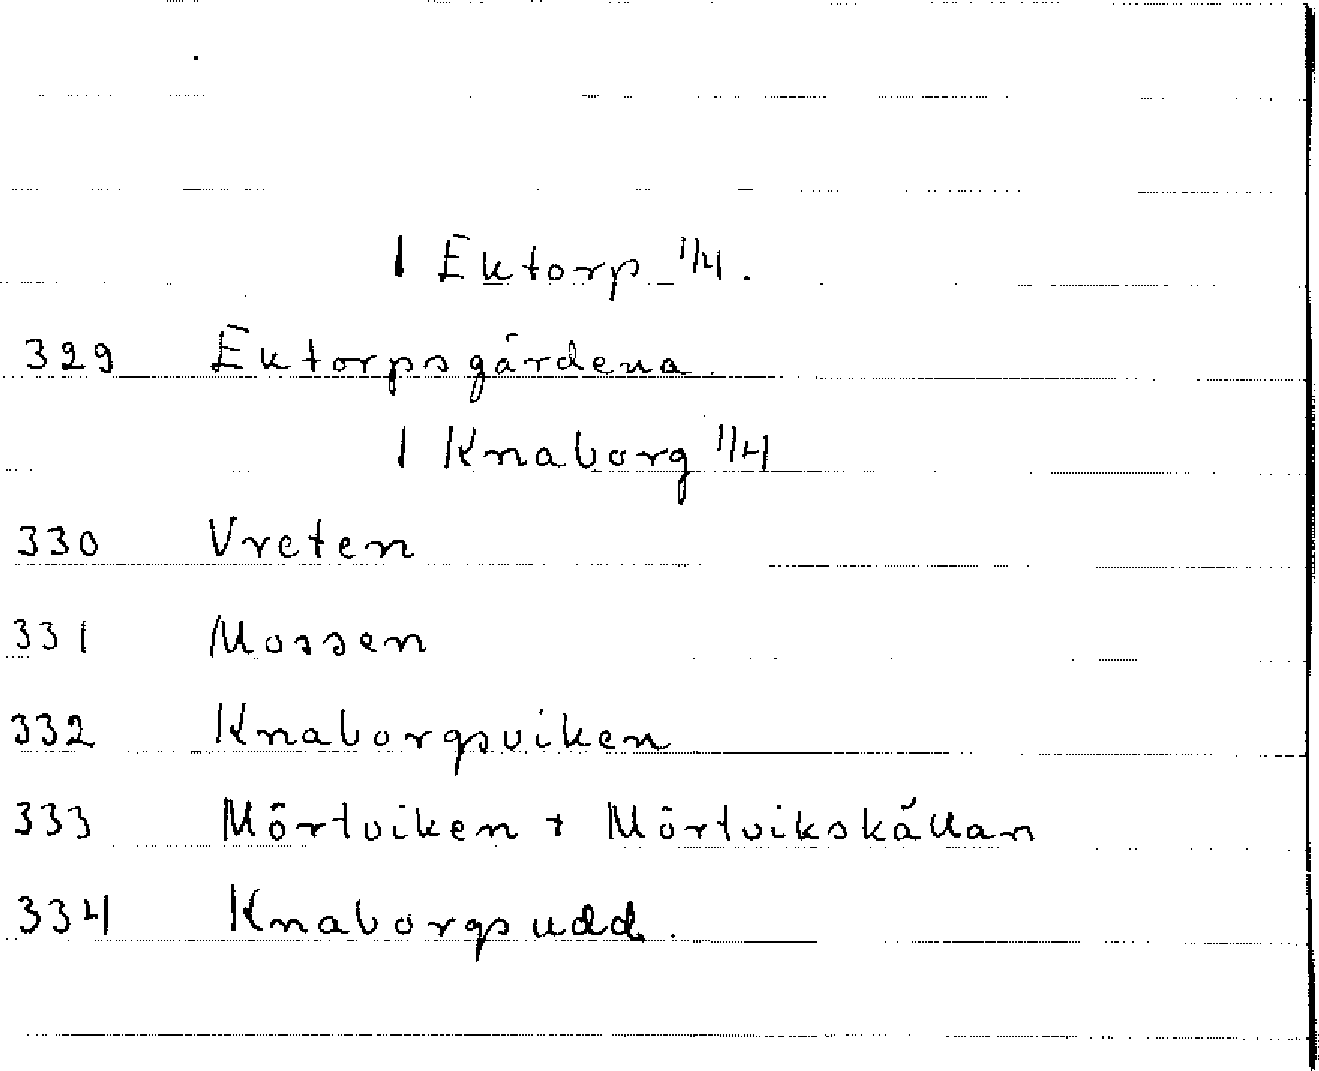 1 Ektorp 1/4.
329 Ektorpsgårdena.
1 Knaborg 1/4
330 Vreten
331 Mossen
332 Knaborgsviken
333 Mörtviken + Mörtvikskällan
334 Knaborgsudd.